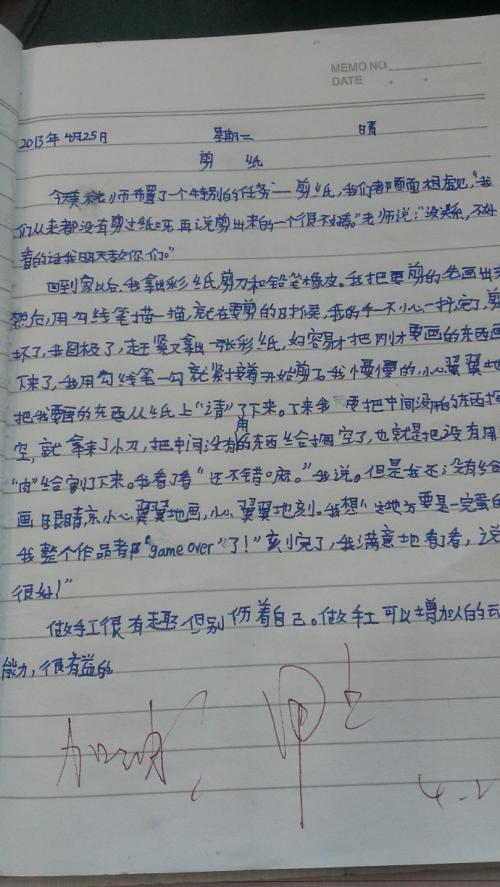 MEMO NO.
DATE
2013年4月25日 星期二 晴
剪 纸
今天老师布置了一个特别的任务——剪纸，我们都面面相觑，“我
们从来都没有剪过纸呀，再说剪出来的一个很不好。”老师说：“没关系，不好
看的话我明天教你们。”
回到家以后，我拿出彩纸剪刀和铅笔橡皮。我把要剪的先画出来
然后，用勾线笔描一描，就在要剪的时候，我的手一不小心一抖，完了，剪
坏了，我困极了，赶紧又拿出一张彩纸，好容易才把刚才要画的东西画
下来了，我用勾线笔一勾就紧接着开始剪了。我慢慢的，小心翼翼地
把我要的东西从纸上“请”了下来。下来我要把中间没用的东西挖
空，就拿来了小刀，把中间没有用的东西给掏空了，也就是把没有用
“肉”给割了下来。我看了看“还不错嘛。”我说。但是我还没有给
画眼睛，小心翼翼地画，小心翼翼地刻。我想“这地方要是一完蛋的
我整个作品都“game over”了！”刻完了，我满意地看了看，这
很好！”
做手工很有趣，但别伤着自己。做手工可以增加人的
能力，很有益的
加油
4.2